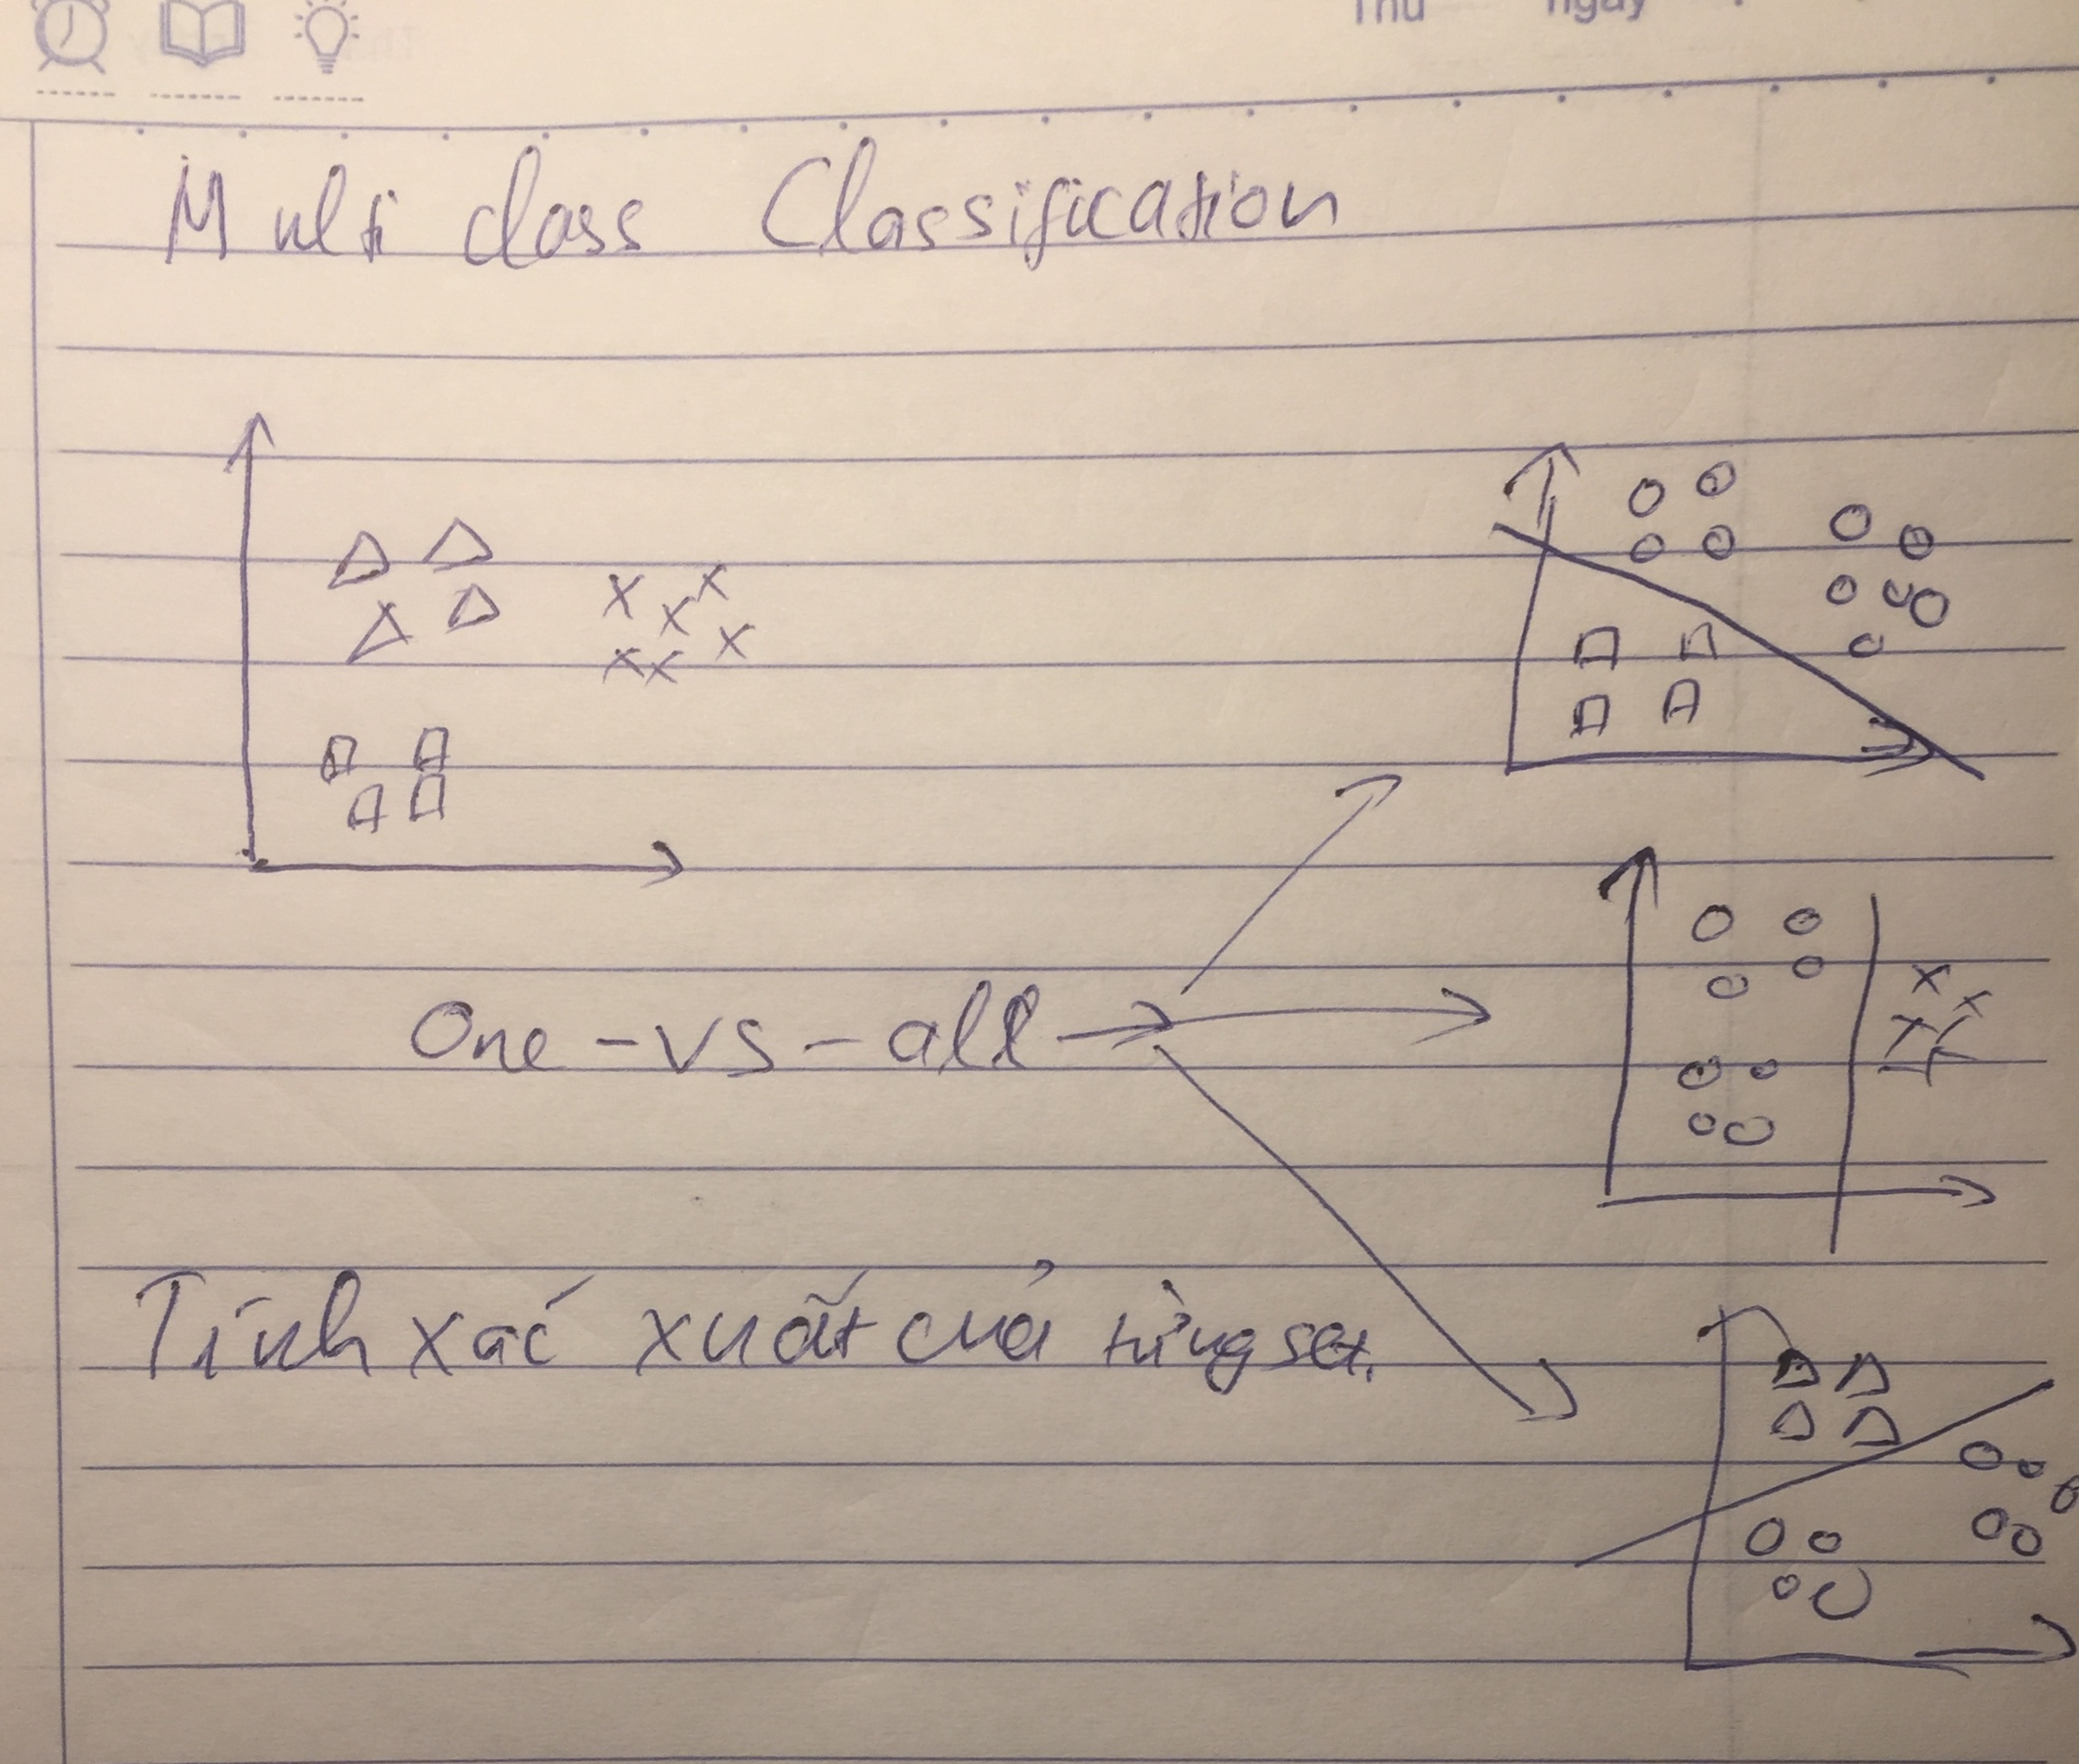 Thứ ngày
Multi class Classification
One-vs-all
Tính xác xuất của từng set.